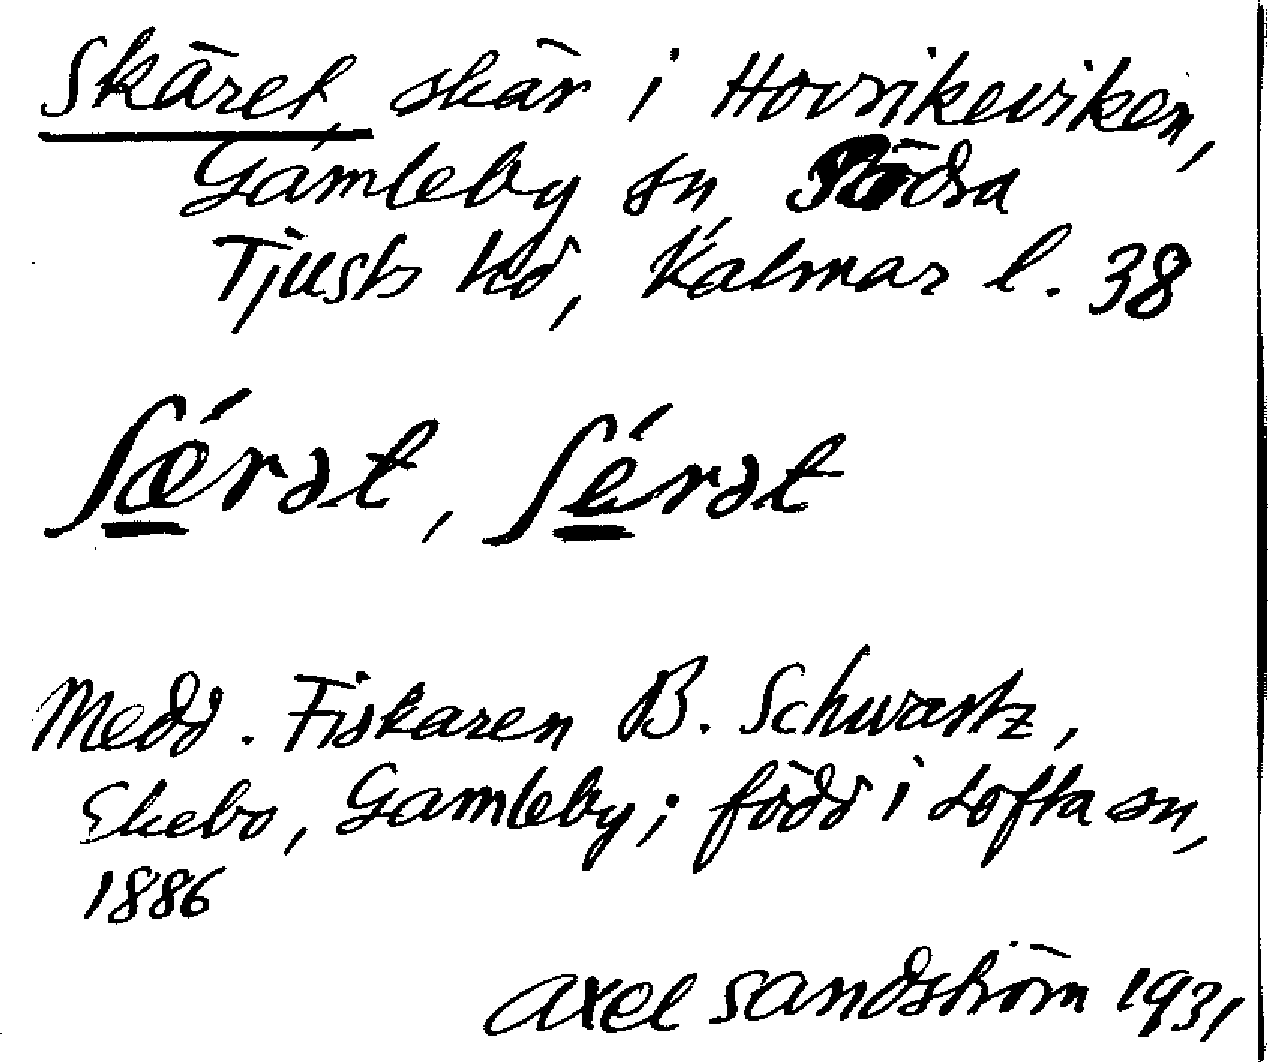 Skäret, skär i Hovrikeviken,
Gamleby sn, Södra
Tjusts hd, Kalmar l. 38
ʃǽ̱rət, ʃé̱rət
Medd. Fiskaren B. Schwartz,
Ekebo, Gamleby; född i Lofta sn,
1886
Axel Sandström 1931